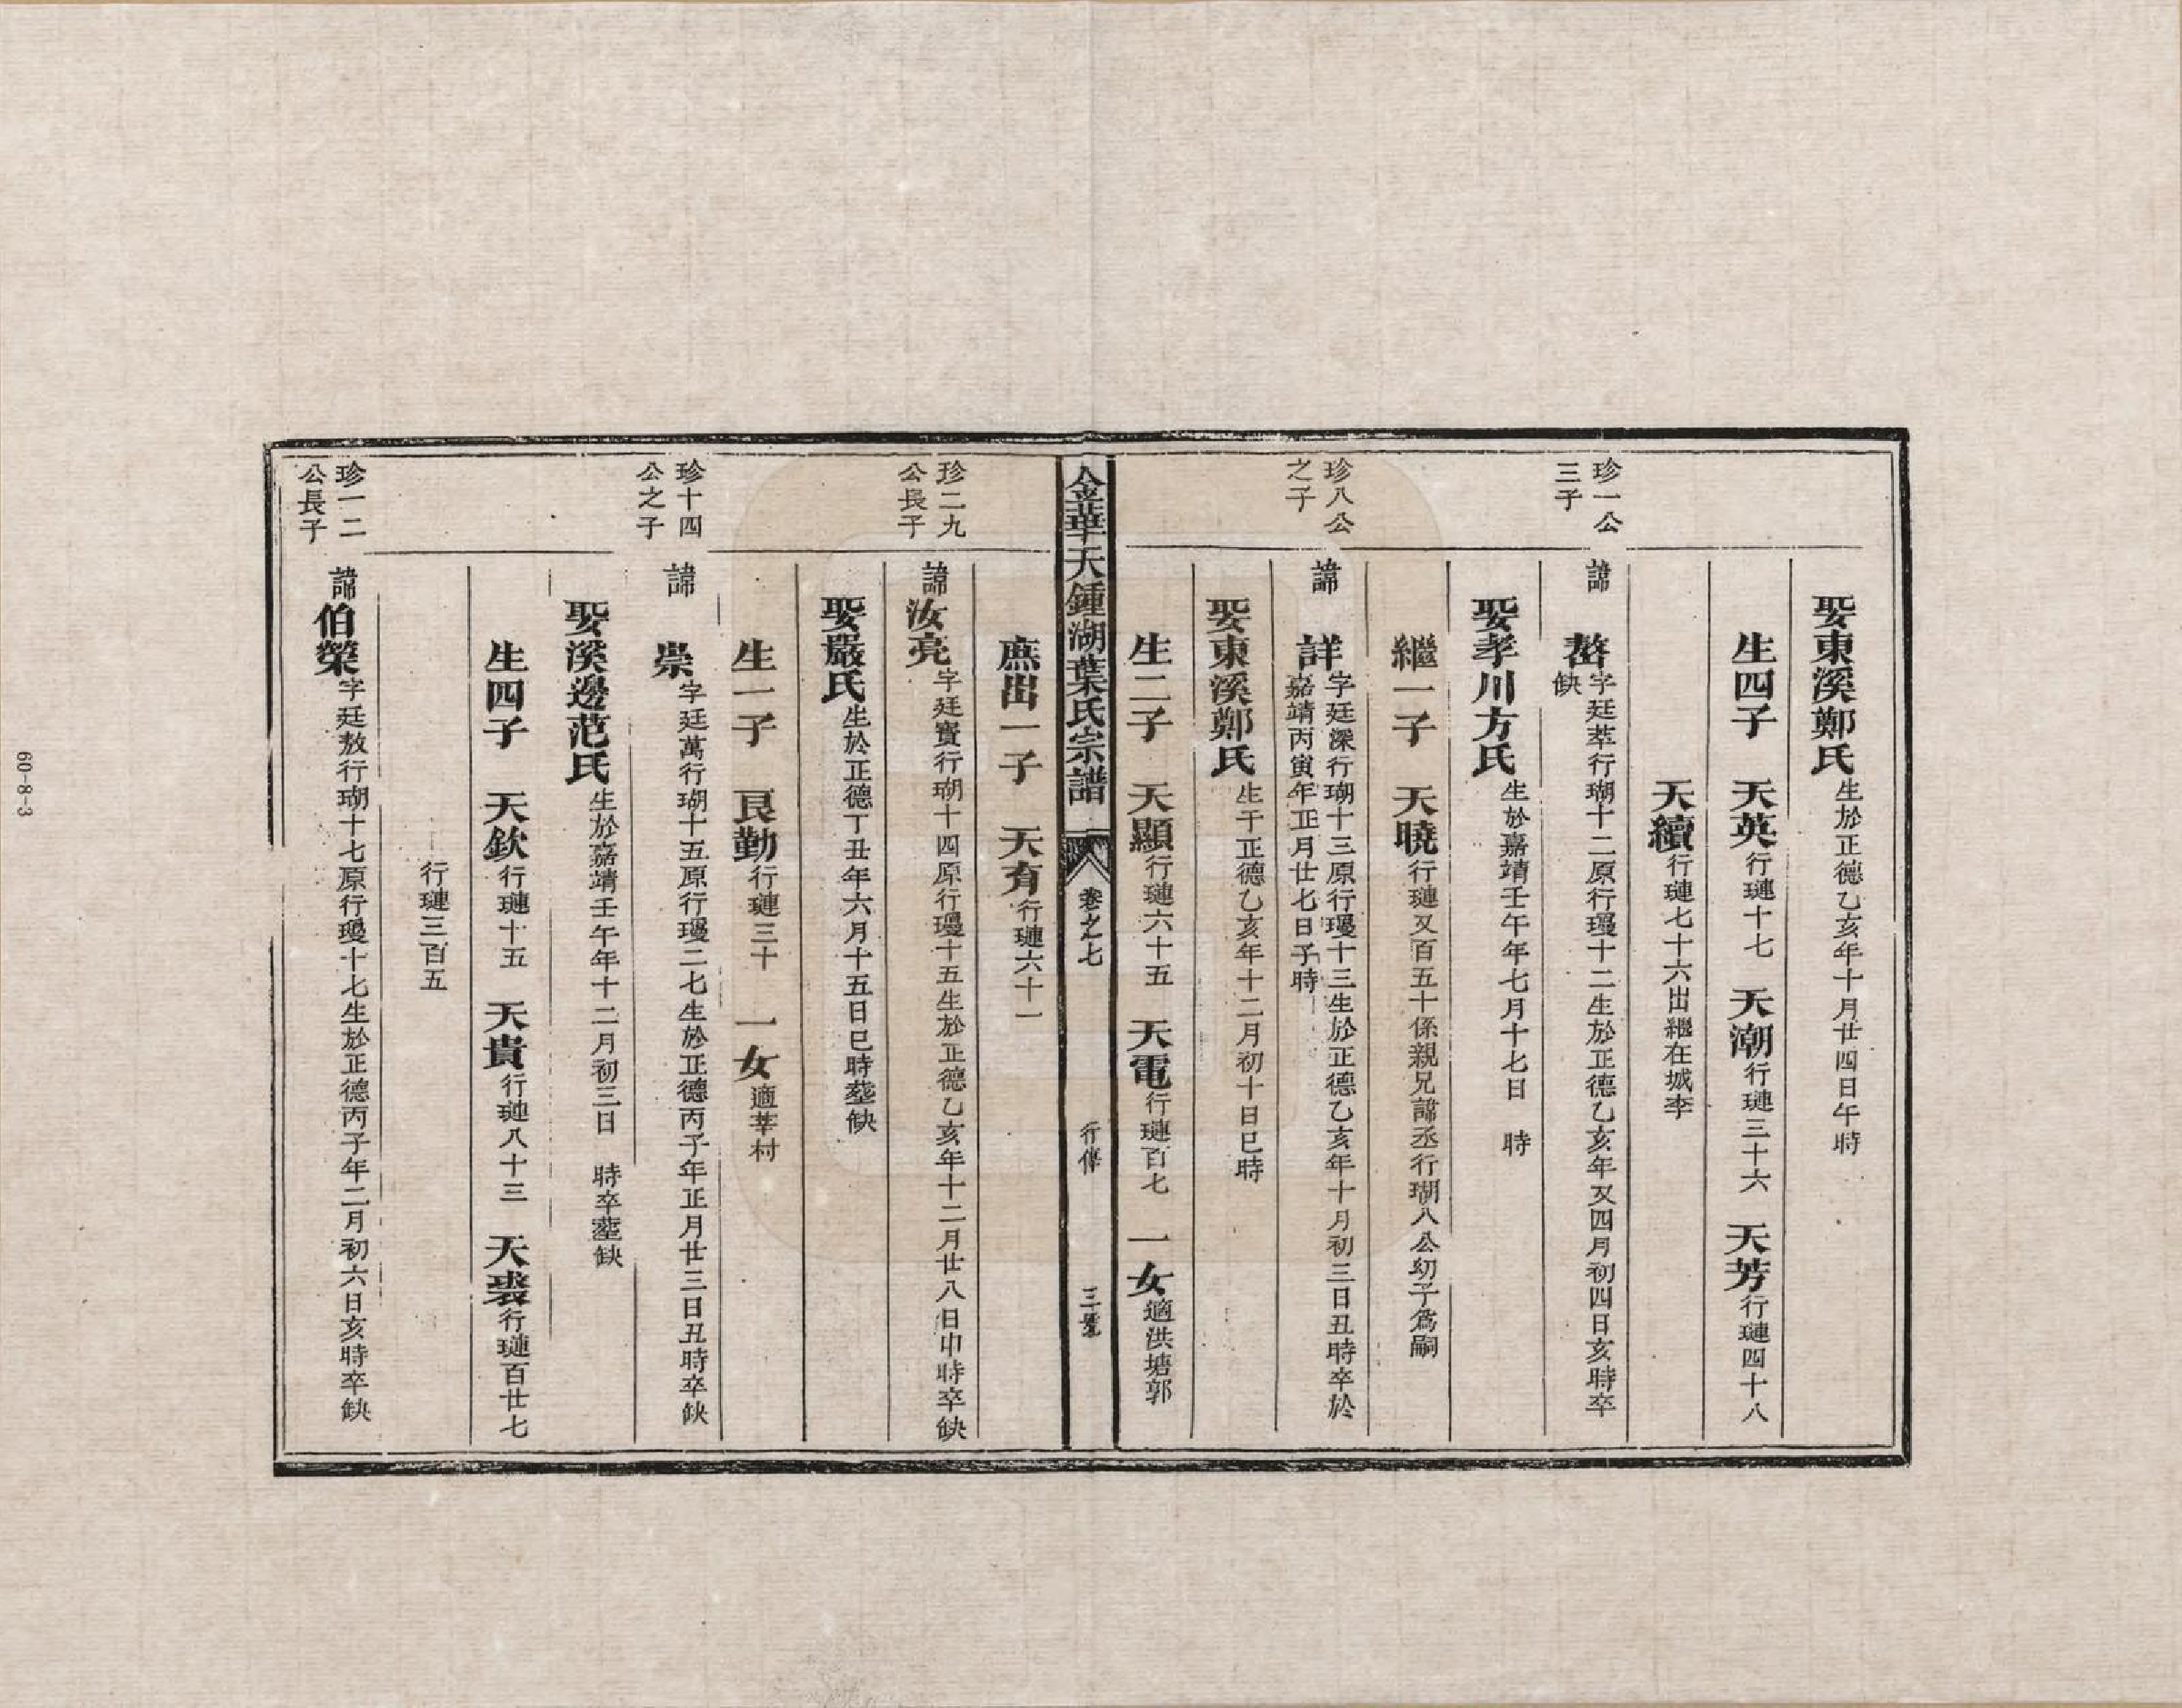 娶東溪鄭氏生於正德乙亥年十月廿四日午時
生四子 天英行璉十七 天潮行璉三十六 天芳行璉四十八
天續行璉七十六出繼在城李
珍一公
三子
諱 嶅字廷萃行瑚十二原行璦十二生於正德乙亥年又四月初四日亥時卒
缺
娶孝川方氏生於嘉靖壬午年七月十七日 時
繼一子 天曉行璉又百五十係親兄諱丞行瑚八公幼子爲嗣
珍八公
之子
諱 詳字廷深行瑚十三原行璦十三生於正德乙亥年十月初三日丑時卒於
嘉靖丙寅年正月廿七日子時
娶東溪鄭氏生于正德乙亥年十二月初十日巳時
生二子 天顯行璉六十五 天電行璉百七 一女適洪塘郭
金華天鍾湖葉氏宗譜 卷之七 行傳 三號
庶出一子 天有行璉六十一
珍二九
公長子
諱汝亮字廷寶行瑚十四原行璦十五生於正德乙亥年十二月廿八日申時卒缺
娶嚴氏生於正德丁丑年六月十五日巳時塟缺
生一子 艮勤行璉三十 一女適莘村
珍十四
公之子
諱 崇字廷萬行瑚十五原行璦二七生於正德丙子年正月廿三日丑時卒缺
娶溪邊范氏生於嘉靖壬午年十二月初三日 時卒塟缺
生四子 天欽行璉十五 天貴行璉八十三 天裘行璉百廿七
行璉三百五
珍一二
公長子
諱伯榮字廷敖行瑚十七原行璦十七生於正德丙子年二月初六日亥時卒缺
60-8-3